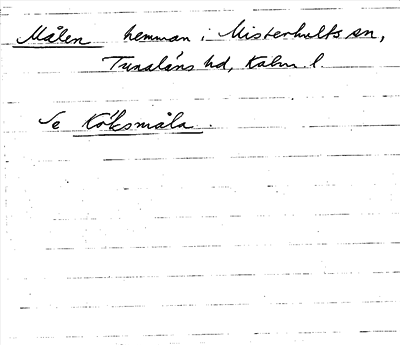 Målen hemman i Misterhults sn,
Tunaläns hd, Kalm. l.
Se Köksmåla.